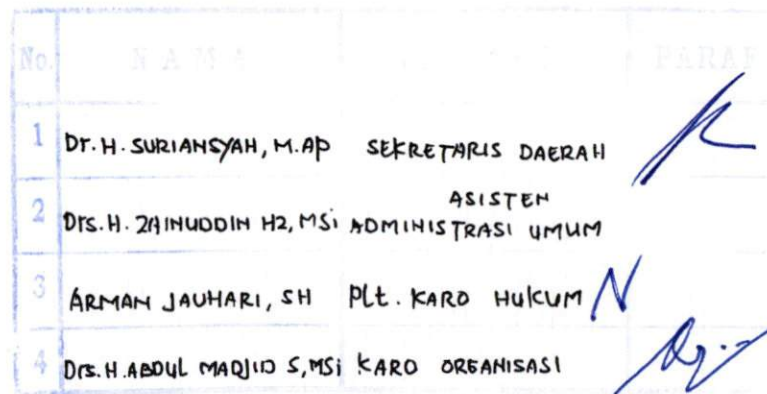 No. NAMA PARAF
1 Dr. H. SURIANSYAH, M.AP SEKRETARIS DAERAH
ASISTEN
2 Drs. H. ZAINUDDIN HZ, MSi ADMINISTRASI UMUM
3 ARMAN JAUHARI, SH Plt. KARO HUKUM
4 Drs. H. ABDUL MADJID S, MSi KARO ORGANISASI